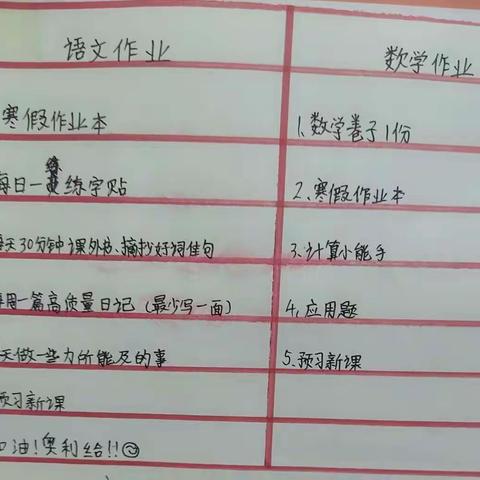 语文作业
数学作业
寒假作业本
1.数学卷子1份
每日一练练字贴
2.寒假作业本
每天30分钟课外书、摘抄好词佳句
3.计算小能手
每周一篇高质量日记(最少写一面)
4.应用题
天做一些力所能及的事
5.预习新课
预习新课
加油!奥利给!!